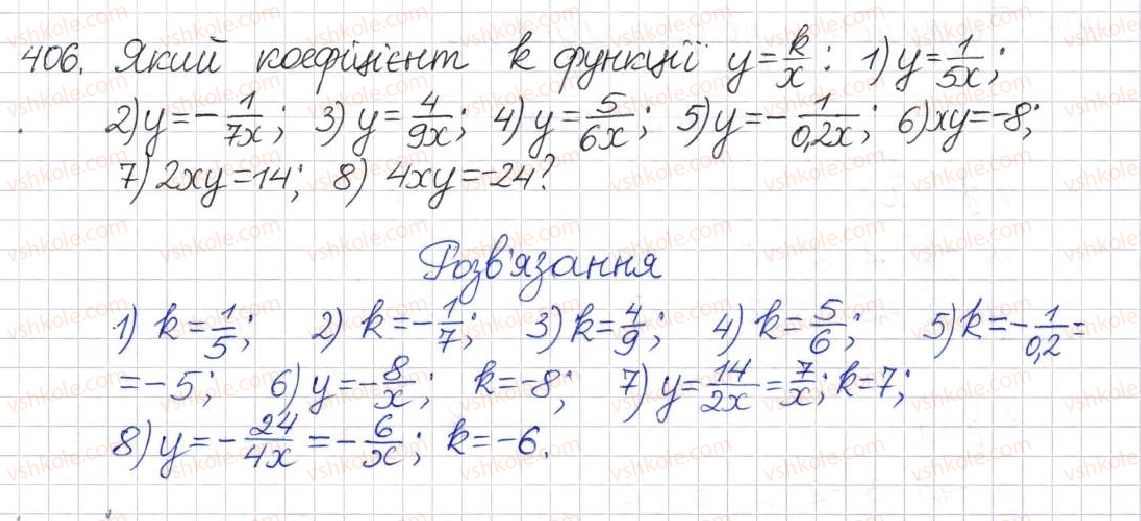 406. Який коефіцієнт k функції y = k/x : 1) y = 1/5x;
2) y = -1/7x; 3) y = 4/9x; 4) y = 5/6x; 5) y = -1/0,2x; 6) xy = -8;
7) 2xy = 14; 8) 4xy = -24?
Розв'язання
1) k = 1/5; 2) k = -1/7; 3) k = 4/9; 4) k = 5/6; 5) k = -1/0,2 =
= -5; 6) y = -8/x; k = -8; 7) y = 14/2x = 7/x; k = 7;
8) y = -24/4x = -6/x; k = -6.